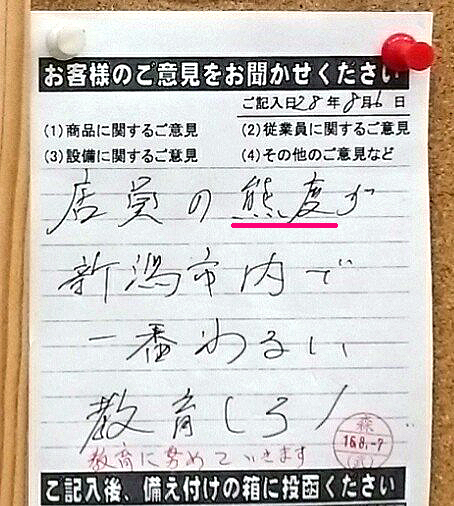 お客様のご意見をお聞かせください
ご記入日28年8月6日
(1)商品に関するご意見 (2)従業員に関するご意見
(3)設備に関するご意見 (4)その他のご意見など
店員の熊度が
新潟市内で
一番わるい
教育しろ!
教育に努めていきます
森
16.8.-7
ご記入後、備え付けの箱に投函ください